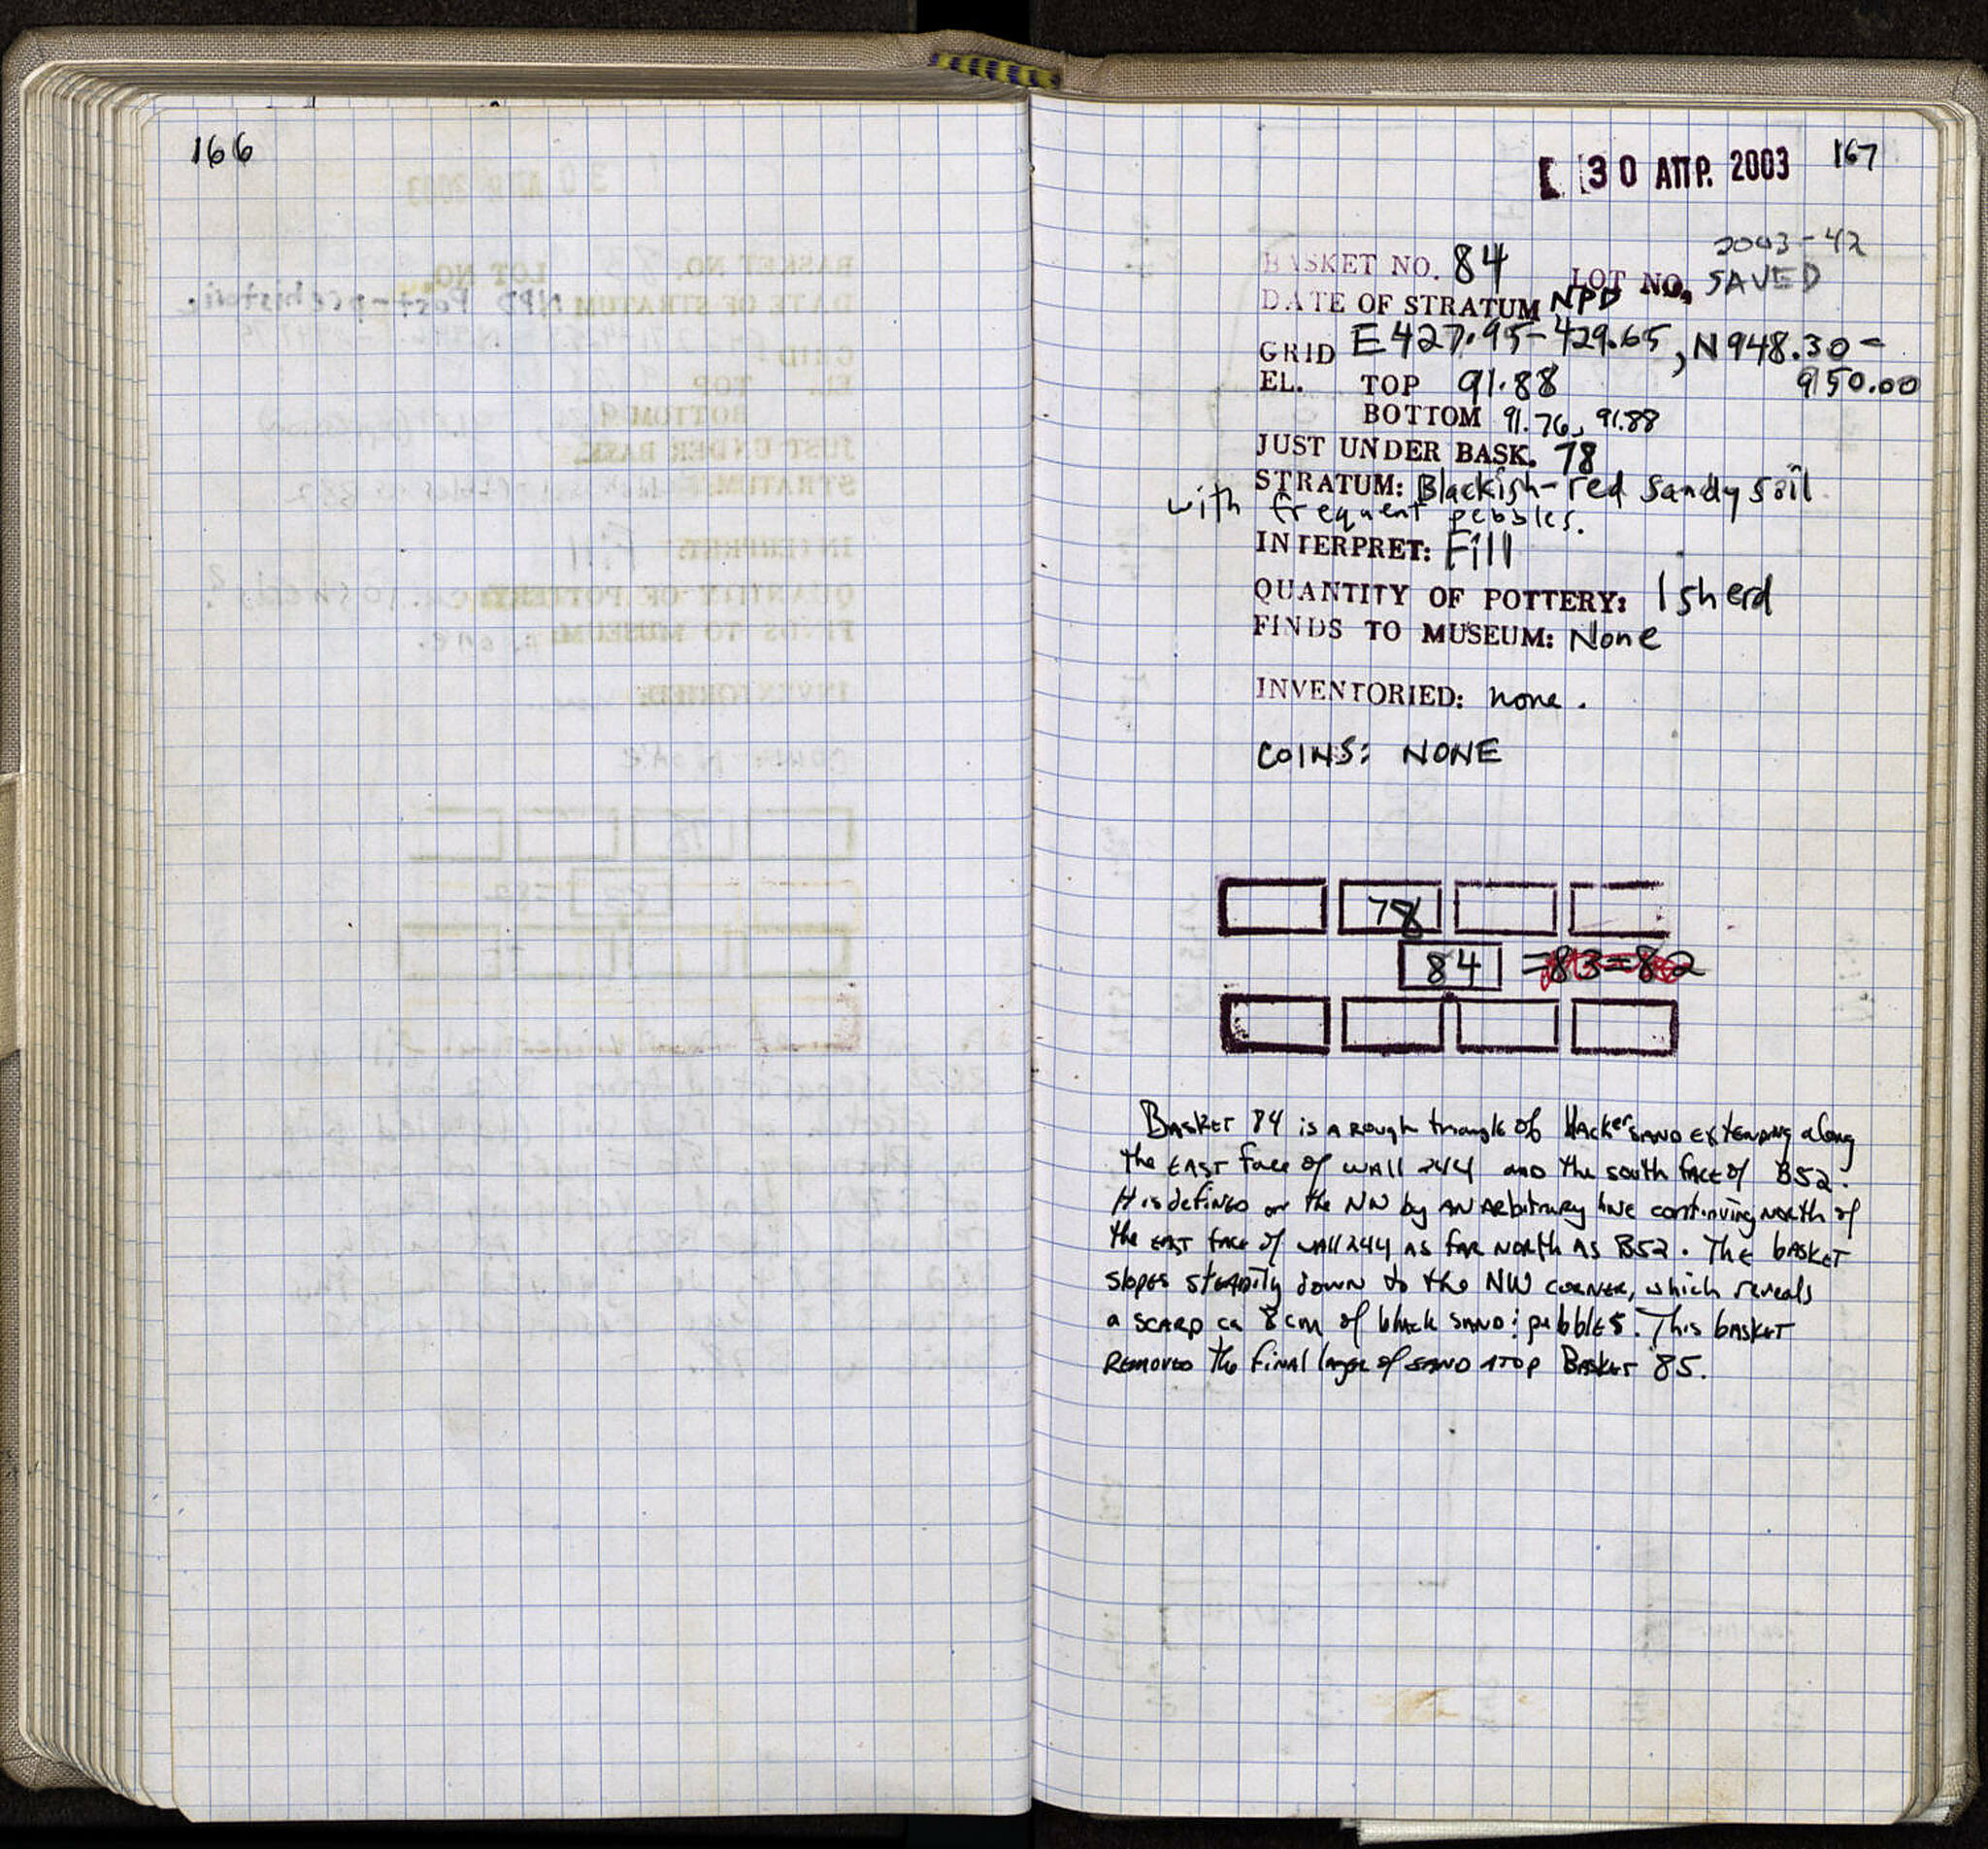 166
30 ΑΠΡ. 2003
167
2003-42
BASKET NO. 84 LOT NO. SAVED
DATE OF STRATUM NPD
GRID E 427.95-429.65, N 948.30-
950.00
EL. TOP 91.88
BOTTOM 91.76, 91.88
JUST UNDER BASK. 78
STRATUM: Blackish-red sandy soil
with frequent pebbles.
INTERPRET: Fill
QUANTITY OF POTTERY: 1 sherd
FINDS TO MUSEUM: None
INVENTORIED: none.
COINS: NONE
78
84 =83=82
Basket 84 is a rough triangle of blacker sand extending along
the east face of wall 244 and the south face of B52.
It is defined on the NW by an arbitrary line continuing north of
the east face of wall 244 as far north as B52. The basket
slopes steadily down to the NW corner, which reveals
a scarp ca 8cm of black sand : pebbles. This basket
removed the final layer of sand atop Basket 85.